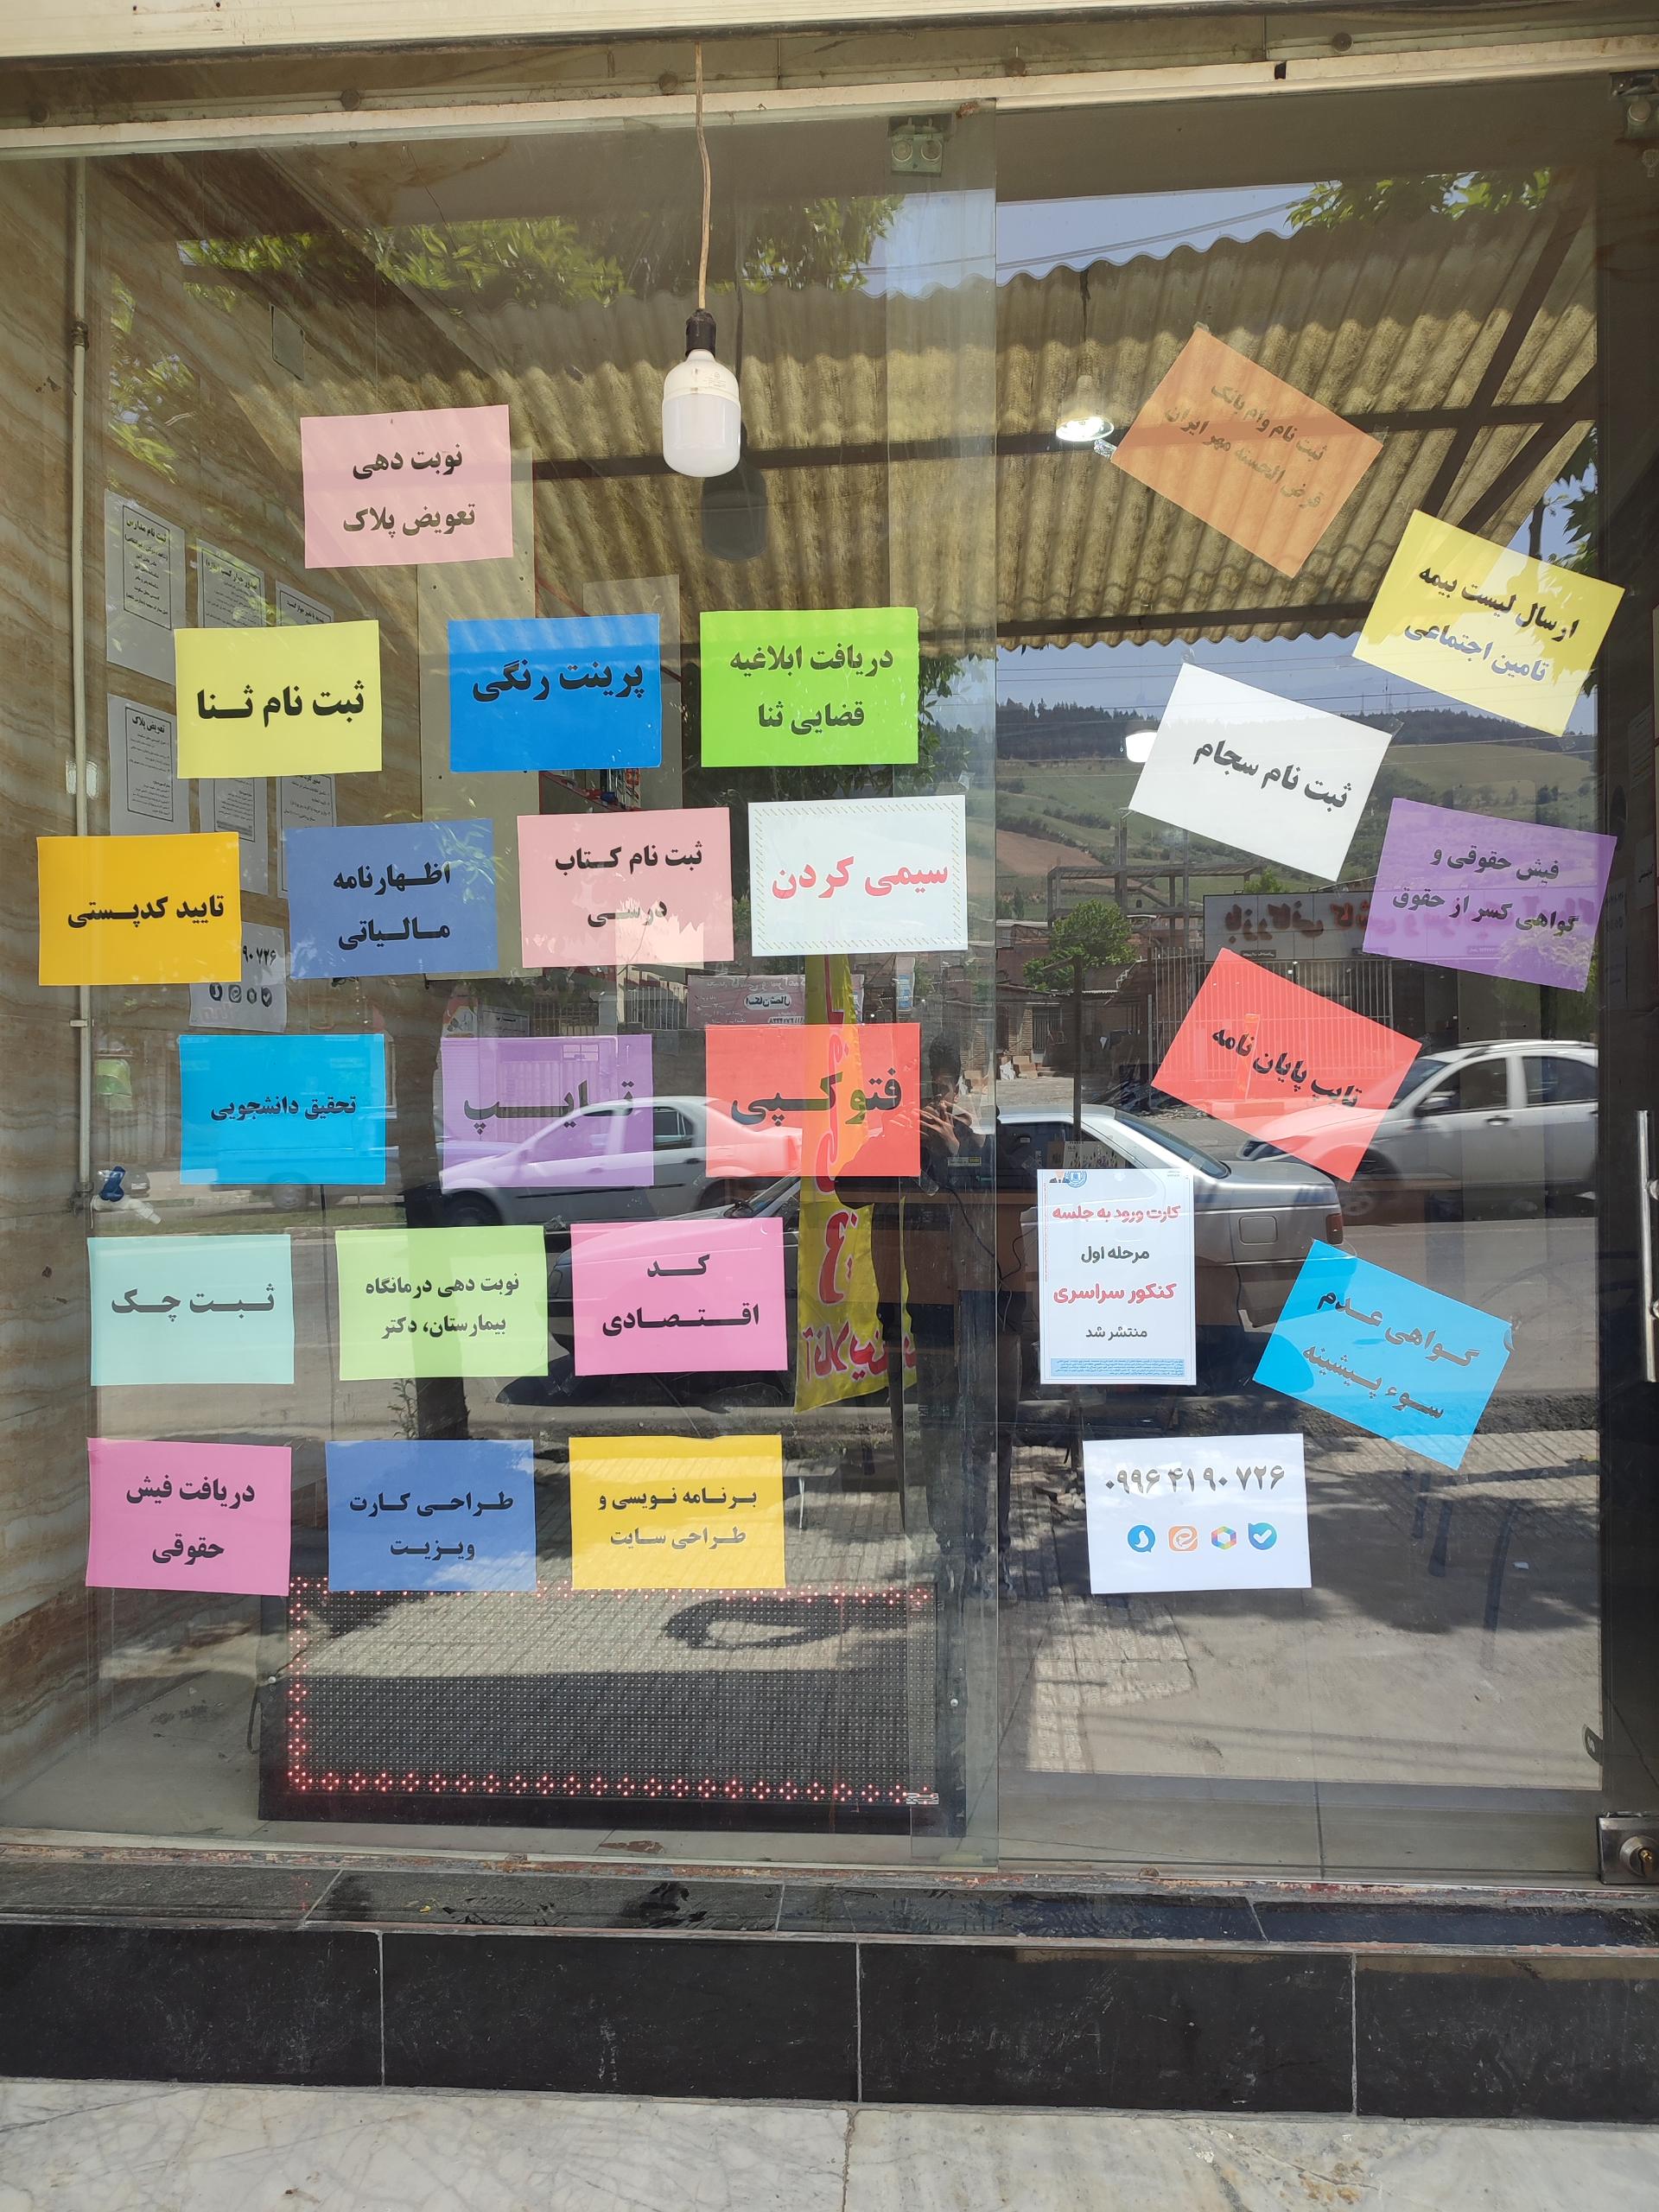 نوبت دهی
تعویض پلاک
ثبت نام وام بانک
قرض الحسنه مهر ایران
ارسال لیست بیمه
تامین اجتماعی
دریافت ابلاغیه
قضایی ثنا
پرینت رنگی
ثبت نام ثنا
ثبت نام سجام
سیمی کردن
ثبت نام کتاب
درسی
اظهارنامه
مالیاتی
تایید کدپستی
فیش حقوقی و
گواهی کسر از حقوق
تایپ پایان نامه
فتوکپی
تایپ
تحقیق دانشجویی
کارت ورود به جلسه
مرحله اول
کنکور سراسری
منتشر شد
گواهی عدم
سوء پیشینه
کد
اقتصادی
نوبت دهی درمانگاه
بیمارستان، دکتر
ثبت چک
۰۹۹۶ ۴۱ ۹۰ ۷۲۶
برنامه نویسی و
طراحی سایت
طراحی کارت
ویزیت
دریافت فیش
حقوقی
ثبت نام مدارس
تعویض پلاک
۹۰ ۷۲۶